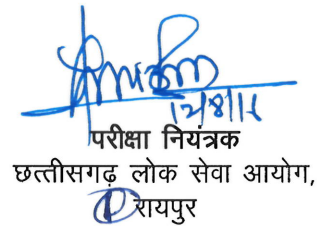 12/8/16
परीक्षा नियंत्रक
छत्तीसगढ़ लोक सेवा आयोग,
रायपुर